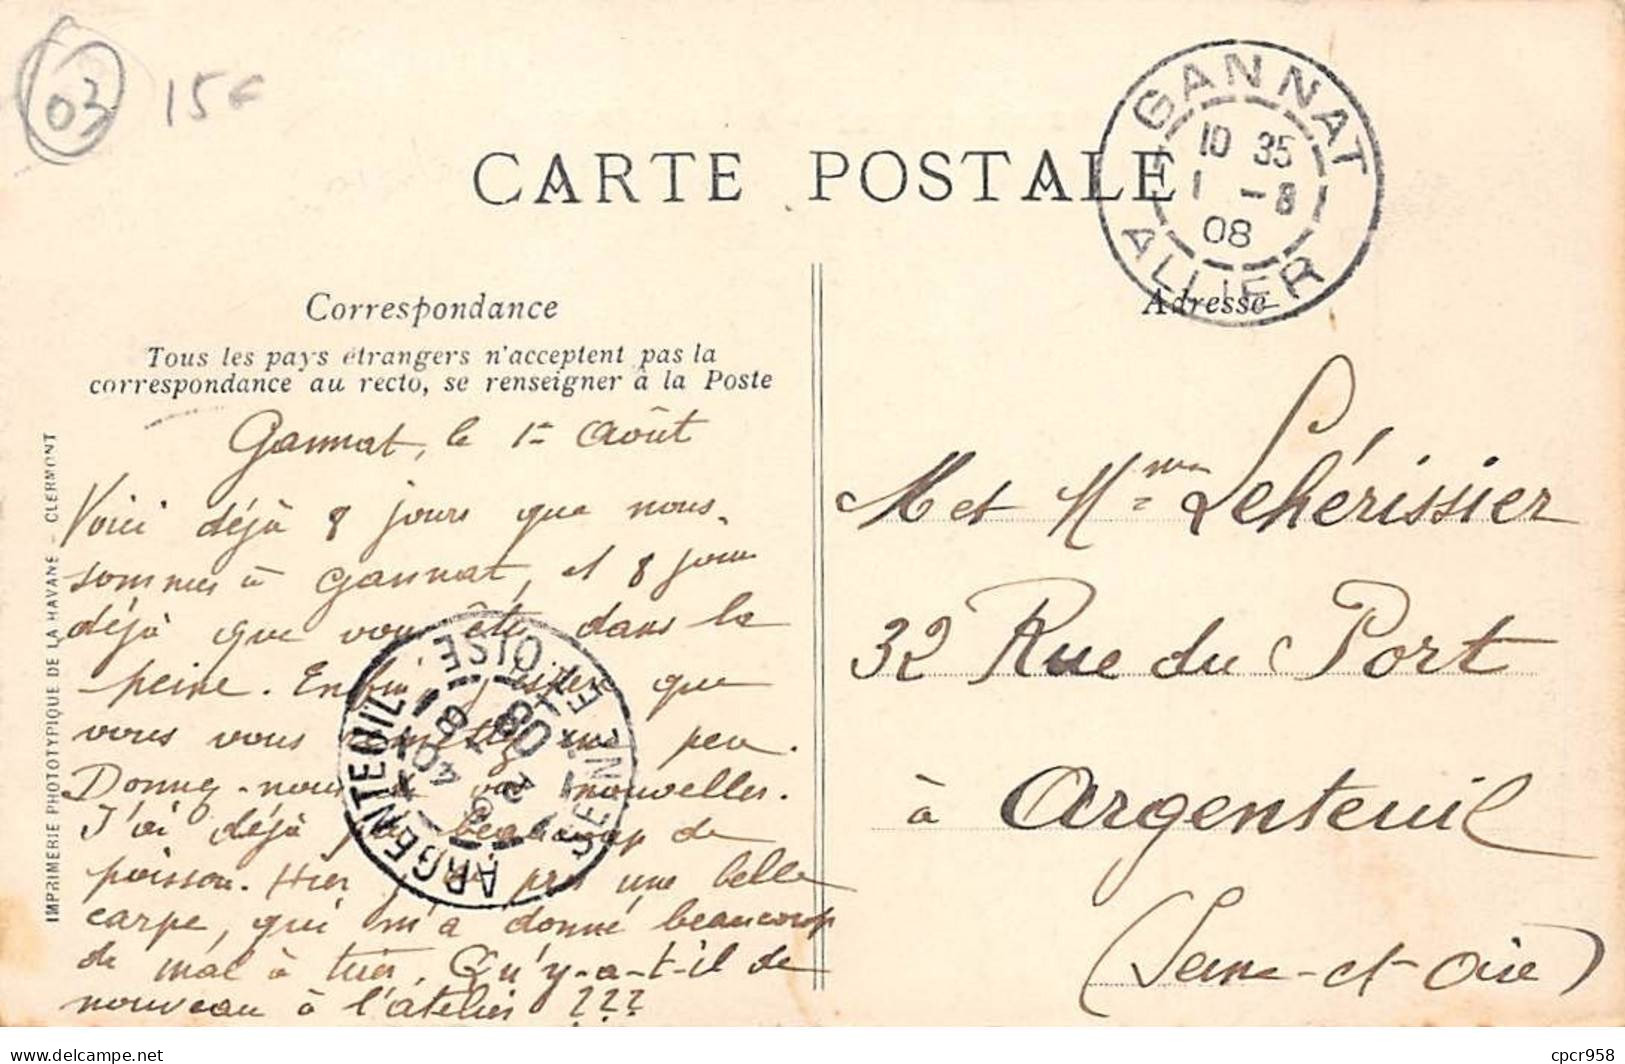 03 15€
CARTE POSTALE
GANNAT
10 35
1 -8
08
ALLIER
Correspondance
Adresse
Tous les pays étrangers n'acceptent pas la
correspondance au recto, se renseigner à la Poste
Gannat, le 1er Août
Voici déjà 8 jours que nous
sommes à Gannat, et 8 jours
déjà que vous êtes dans la
peine. Enfin, j'espère que
vous vous remettez un peu.
Donnez-nous de vos nouvelles.
J'ai déjà pris beaucoup de
poisson. Hier j'ai pris une belle
carpe, qui m'a donné beaucoup
de mal à tirer. Qu'y-a-t-il de
nouveau à l'atelier ???
ARGENTEUIL
SEINE ET OISE
M et Mme Lehérissier
32 Rue du Port
à Argenteuil
(Seine-et-Oise)
IMPRIMERIE PHOTOTYPIQUE DE LA HAVANE - CLERMONT
www.delcampe.net
cpcr958